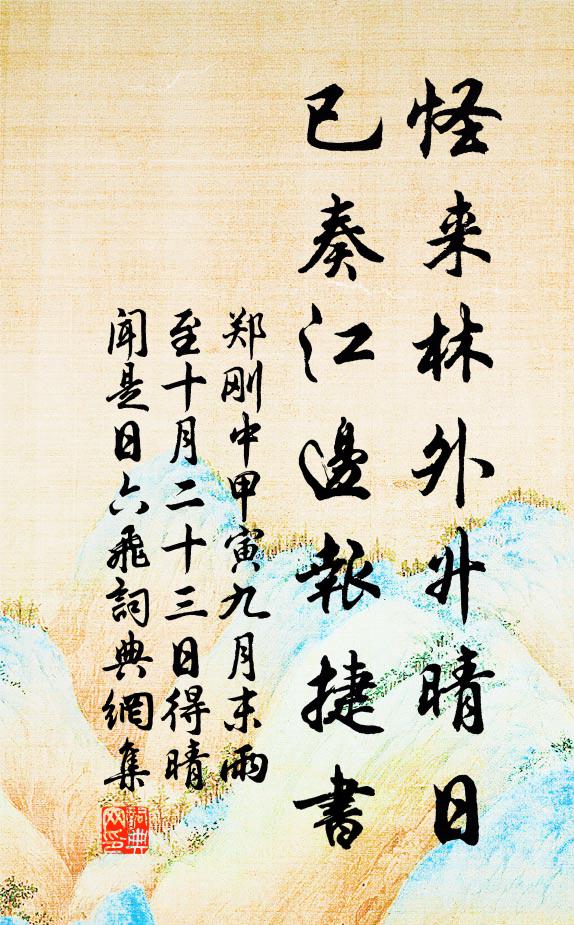 怪来林外升晴日
已奏江邊報捷書
郑刚中甲寅九月末雨
至十月二十三日得晴
闻是日六飛詞典網集
詞典